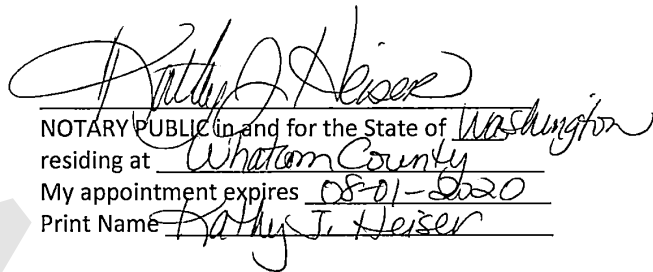 Kathy J Heiser
NOTARY PUBLIC in and for the State of Washington
residing at Whatcom County
My appointment expires 08-01-2020
Print Name Kathy J. Heiser